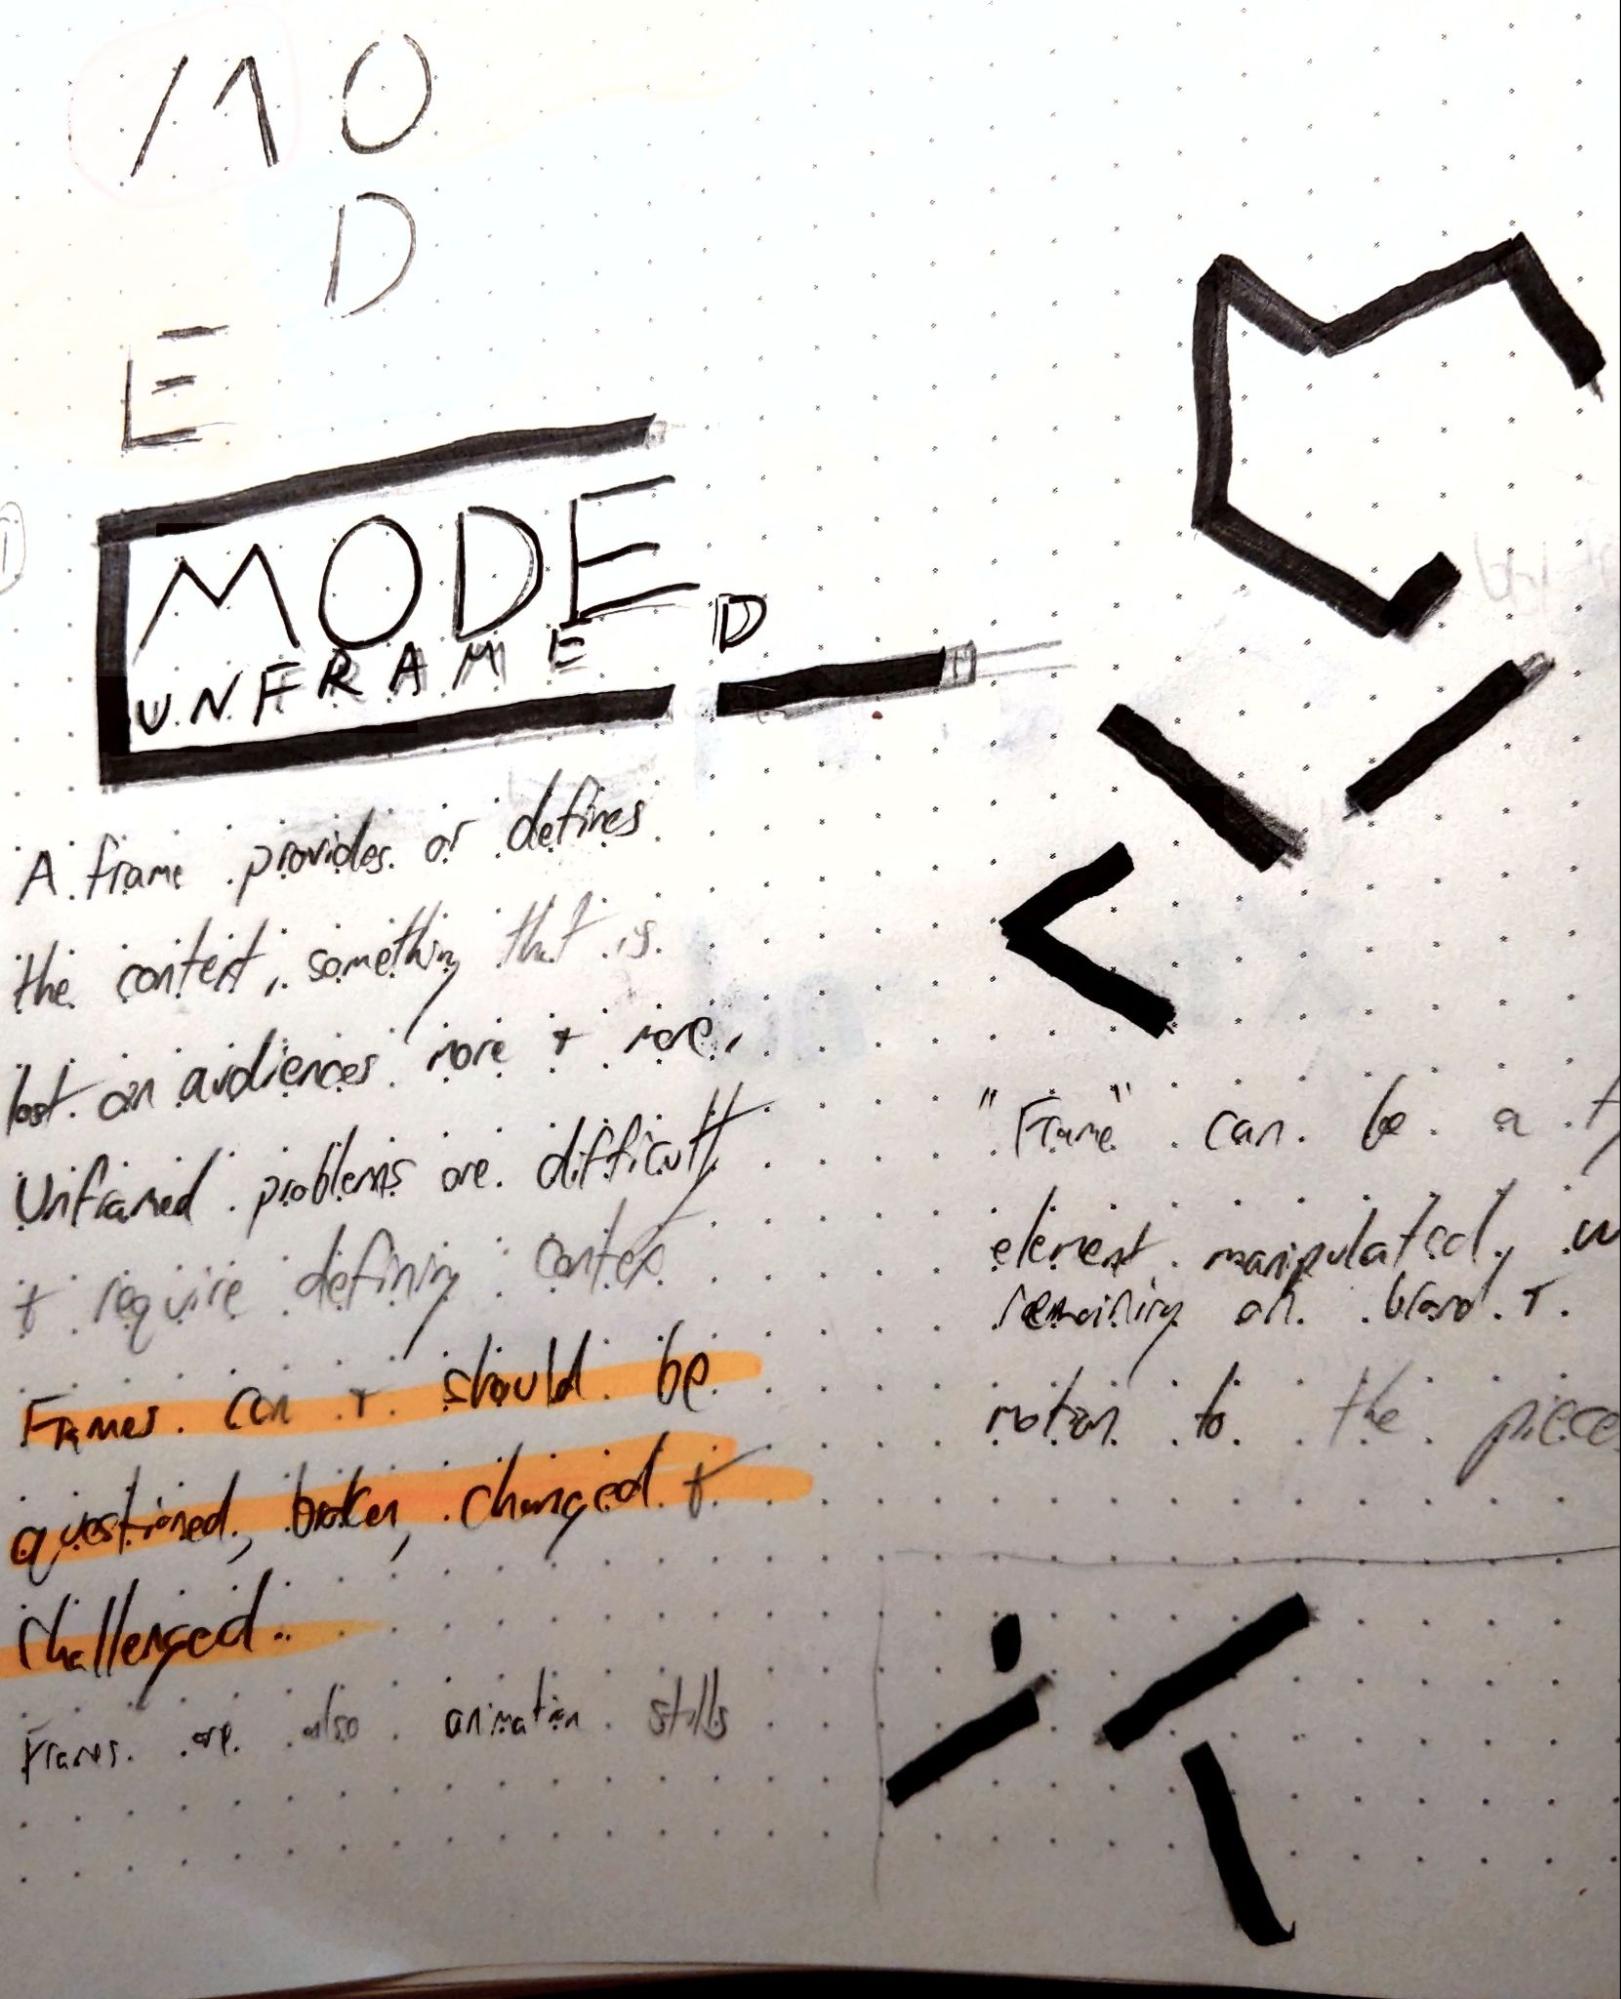 MO
D
E
MODE
UNFRAMED
A frame provides or defines
the context, something that is
lost on audiences more + more.
Unframed problems are difficult
+ require defining contex
Frames can + should be
questioned, broken, changed +
challenged..
Frames are also animation stills
"Frame" can be a
element manipulated,
remaining on brand +
motion to the piece